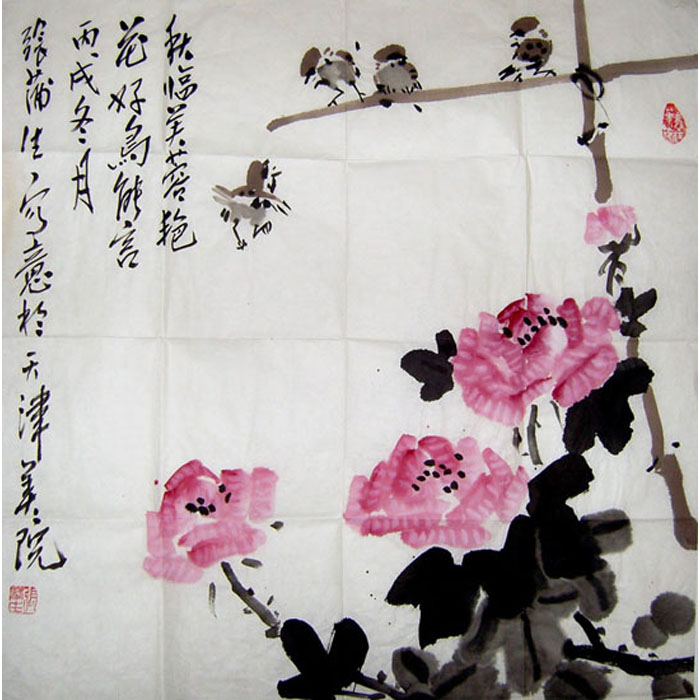 秋临芙蓉艳
花好鸟能言
丙戌冬月
張蒲生写意於天津美院